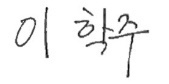 이학주